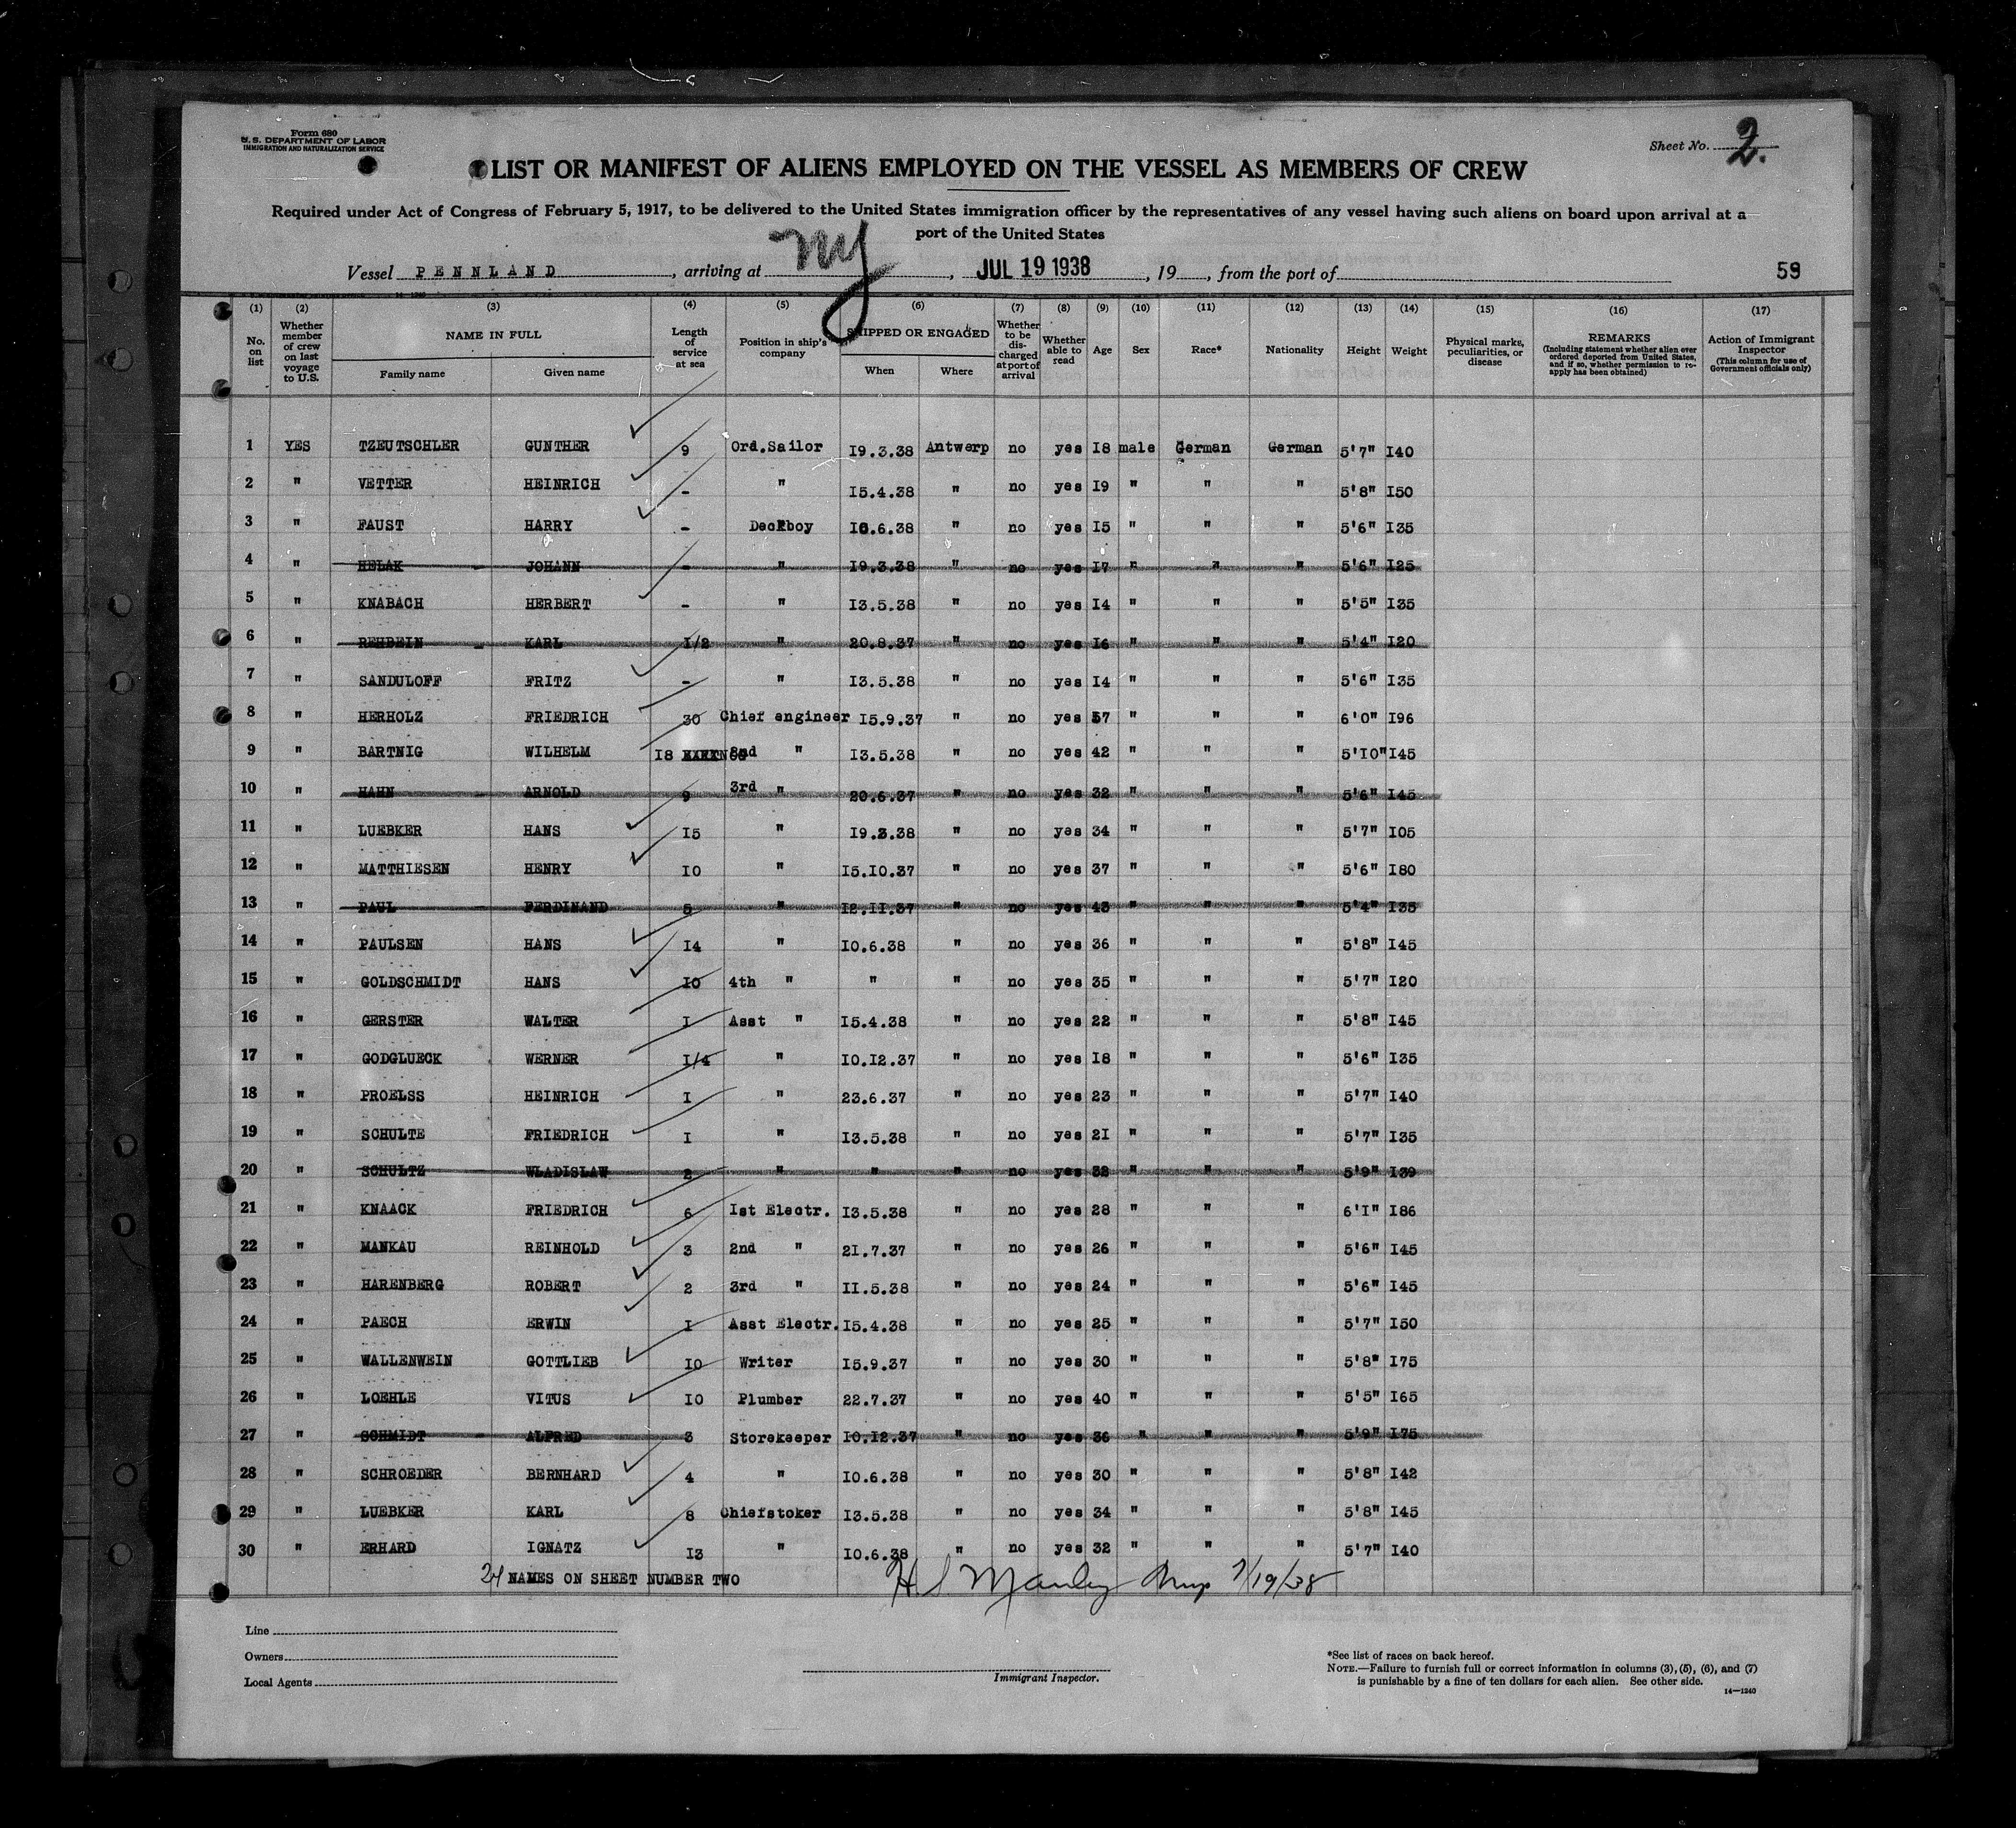 Form 680
U. S. DEPARTMENT OF LABOR
IMMIGRATION AND NATURALIZATION SERVICE
Sheet No. 2.
LIST OR MANIFEST OF ALIENS EMPLOYED ON THE VESSEL AS MEMBERS OF CREW
Required under Act of Congress of February 5, 1917, to be delivered to the United States immigration officer by the representatives of any vessel having such aliens on board upon arrival at a
port of the United States
Vessel PENNLAND, arriving at NY, JUL 19 1938, 19, from the port of 59
(1) (2) (3) (4) (5) (6) (7) (8) (9) (10) (11) (12) (13) (14) (15) (16) (17)
No. on list Whether member of crew on last voyage to U.S. NAME IN FULL Family name Given name Length of service at sea Position in ship's company SHIPPED OR ENGAGED When Where Whether to be discharged at port of arrival Whether able to read Age Sex Race* Nationality Height Weight Physical marks, peculiarities, or disease REMARKS (Including statement whether alien ever ordered deported from United States, and if so, whether permission to reapply has been obtained) Action of Immigrant Inspector (This column for use of Government officials only)
1 YES TZEUTSCHLER GUNTHER 9 Ord.Sailor I9.3.38 Antwerp no yes I8 male German German 5'7" I40
2 " VETTER HEINRICH - " I5.4.38 " no yes I9 " " " 5'8" I50
3 " FAUST HARRY - Deckboy I0.6.38 " no yes I5 " " " 5'6" I35
4 " HELAK - JOHANN - " I9.3.38 " no yes I7 " " " 5'6" I25
5 " KNABACH HERBERT - " I3.5.38 " no yes I4 " " " 5'5" I35
6 " REHBEIN - KARL I/2 " 20.8.37 " no yes I6 " " " 5'4" I20
7 " SANDULOFF FRITZ - " I3.5.38 " no yes I4 " " " 5'6" I35
8 " HERHOLZ FRIEDRICH 30 Chief engineer I5.9.37 " no yes 57 " " " 6'0" I96
9 " BARTNIG WILHELM I8 2nd " I3.5.38 " no yes 42 " " " 5'I0" I45
10 " HAHN ARNOLD 9 3rd " 20.6.37 " no yes 32 " " " 5'6" I45
11 " LUEBKER HANS I5 " I9.3.38 " no yes 34 " " " 5'7" I05
12 " MATTHIESEN HENRY I0 " I5.I0.37 " no yes 37 " " " 5'6" I80
13 " PAUL FERDINAND 5 " I2.II.37 " no yes 43 " " " 5'4" I35
14 " PAULSEN HANS I4 " I0.6.38 " no yes 36 " " " 5'8" I45
15 " GOLDSCHMIDT HANS I0 4th " " " no yes 35 " " " 5'7" I20
16 " GERSTER WALTER I Asst " I5.4.38 " no yes 22 " " " 5'8" I45
17 " GODGLUECK WERNER I/4 " I0.I2.37 " no yes I8 " " " 5'6" I35
18 " PROELSS HEINRICH I " 23.6.37 " no yes 23 " " " 5'7" I40
19 " SCHULTE FRIEDRICH I " I3.5.38 " no yes 2I " " " 5'7" I35
20 " SCHULTZ WLADISLAW 2 " " " no yes 32 " " " 5'9" I39
21 " KNAACK FRIEDRICH 6 Ist Electr. I3.5.38 " no yes 28 " " " 6'I" I86
22 " MANKAU REINHOLD 3 2nd " 2I.7.37 " no yes 26 " " " 5'6" I45
23 " HARENBERG ROBERT 2 3rd " II.5.38 " no yes 24 " " " 5'6" I45
24 " PAECH ERWIN I Asst Electr. I5.4.38 " no yes 25 " " " 5'7" I50
25 " WALLENWEIN GOTTLIEB I0 Writer I5.9.37 " no yes 30 " " " 5'8" I75
26 " LOEHLE VITUS I0 Plumber 22.7.37 " no yes 40 " " " 5'5" I65
27 " SCHMIDT - ALFRED 3 Storekeeper I0.I2.37 " no yes 36 " " " 5'9" I75
28 " SCHROEDER BERNHARD 4 " I0.6.38 " no yes 30 " " " 5'8" I42
29 " LUEBKER KARL 8 Chiefstoker I3.5.38 " no yes 34 " " " 5'8" I45
30 " ERHARD IGNATZ I3 " I0.6.38 " no yes 32 " " " 5'7" I40
24 NAMES ON SHEET NUMBER TWO H. S Manley Insp 7/19/38
Line
Owners
Local Agents
Immigrant Inspector.
*See list of races on back hereof.
NOTE.—Failure to furnish full or correct information in columns (3), (5), (6), and (7)
is punishable by a fine of ten dollars for each alien. See other side.
14—1240